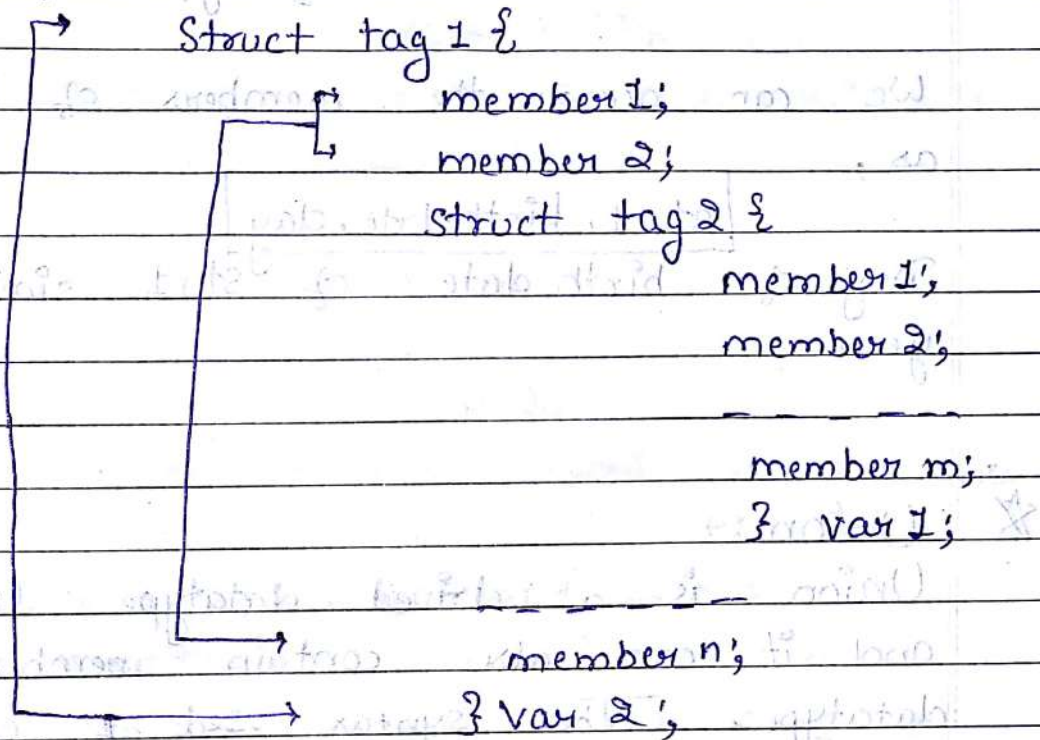 Struct tag 1 {
member 1;
member 2;
struct tag 2 {
member 1;
member 2;
- - - - -
member m;
} var 1;
- - - - - - -
member n;
} var 2;